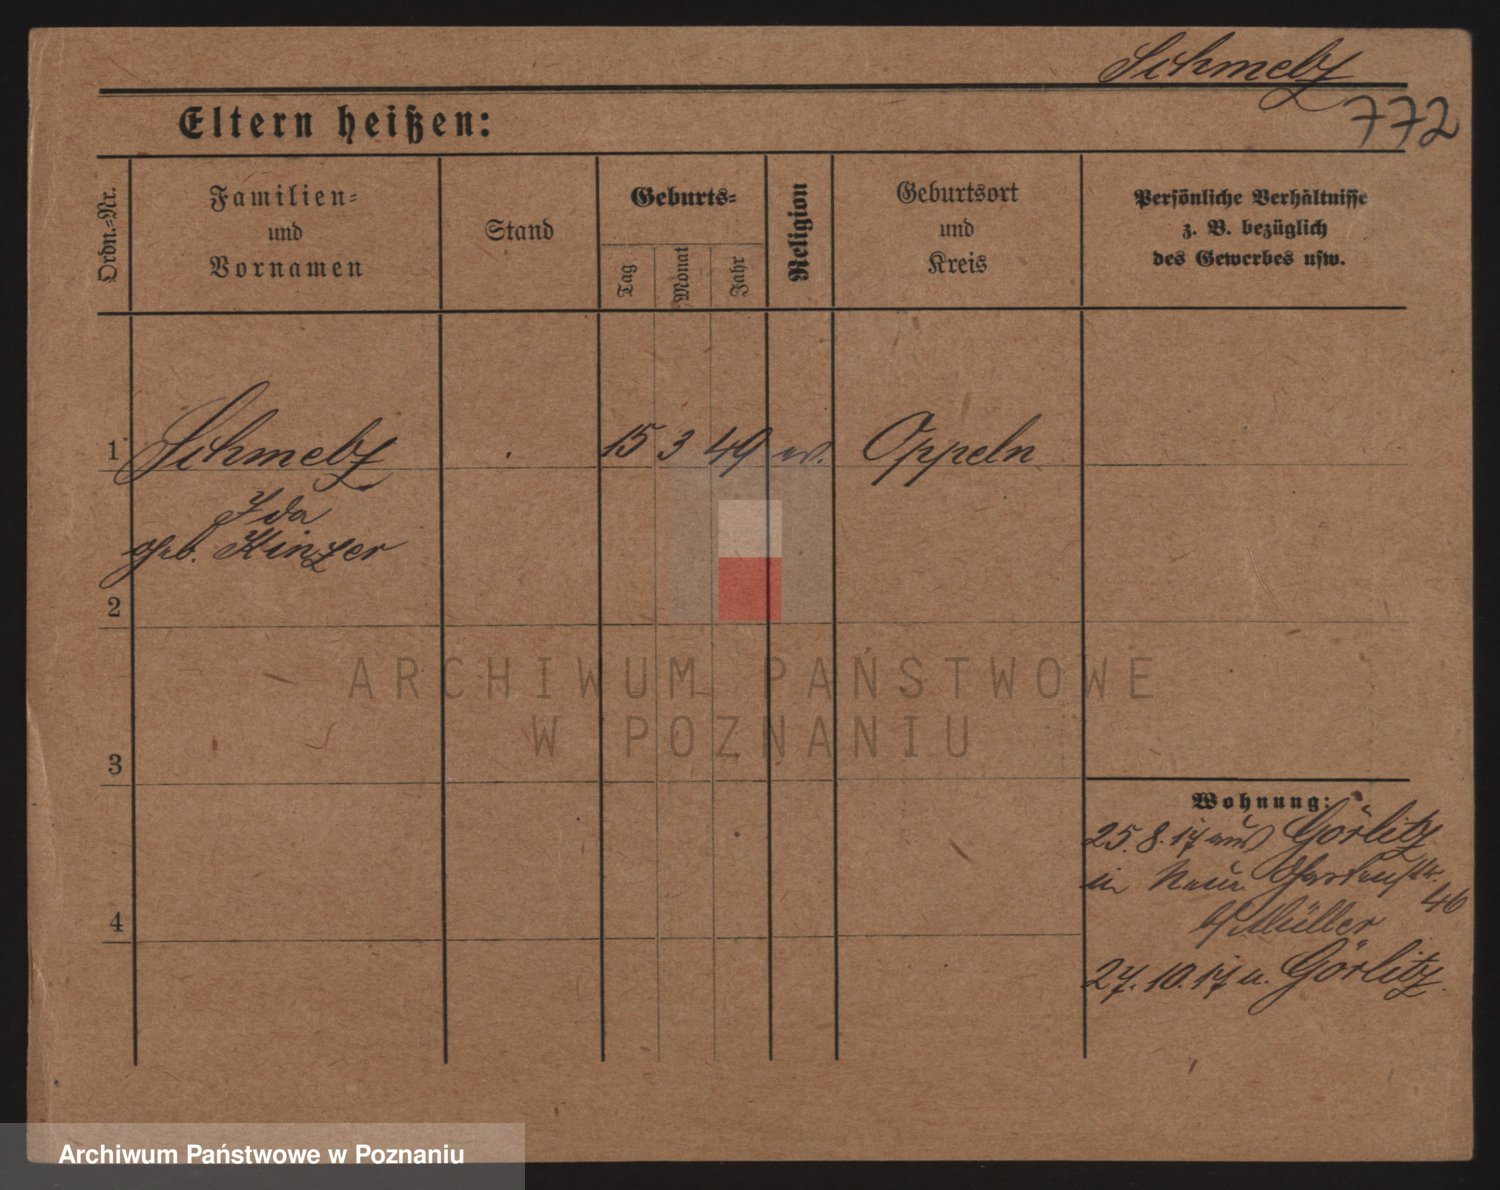 Schmelz
772
Eltern heißen:
Ordn.-Nr.
Familien-
und
Vornamen
Stand
Geburts-
Tag
Monat
Jahr
Religion
Geburtsort
und
Kreis
Persönliche Verhältnisse
z. B. bezüglich
des Gewerbes usw.
1 Schmelz 15 3 49 ev. Oppeln
Ida
geb. Kinzer
2
ARCHIWUM PAŃSTWOWE
W POZNANIU
3
Wohnung:
25.8.17 aus Görlitz
in Neue Gartenstr.
46
b/ Müller
4
27.10.17 n. Görlitz
Archiwum Państwowe w Poznaniu